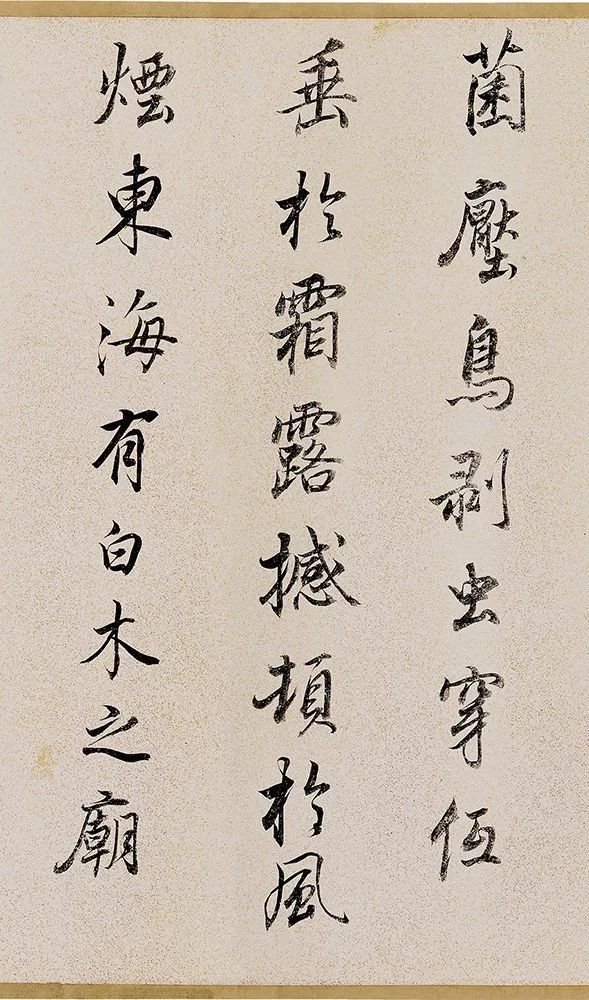 菌壓鳥剥虫穿低
垂於霜露撼頓於風
煙東海有白木之廟